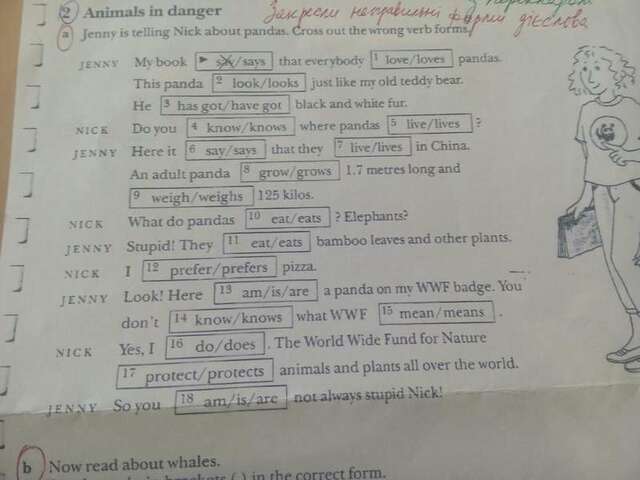 Закресли неправильні форми дієслова
2 Animals in danger
a Jenny is telling Nick about pandas. Cross out the wrong verb forms.
JENNY My book ► say/says that everybody 1 love/loves pandas.
This panda 2 look/looks just like my old teddy bear.
He 3 has got/have got black and white fur.
NICK Do you 4 know/knows where pandas 5 live/lives ?
JENNY Here it 6 say/says that they 7 live/lives in China.
An adult panda 8 grow/grows 1.7 metres long and
9 weigh/weighs 125 kilos.
NICK What do pandas 10 eat/eats ? Elephants?
JENNY Stupid! They 11 eat/eats bamboo leaves and other plants.
NICK I 12 prefer/prefers pizza.
JENNY Look! Here 13 am/is/are a panda on my WWF badge. You
don't 14 know/knows what WWF 15 mean/means .
NICK Yes, I 16 do/does . The World Wide Fund for Nature
17 protect/protects animals and plants all over the world.
JENNY So you 18 am/is/are not always stupid Nick!
b Now read about whales.
in brackets ( ) in the correct form.